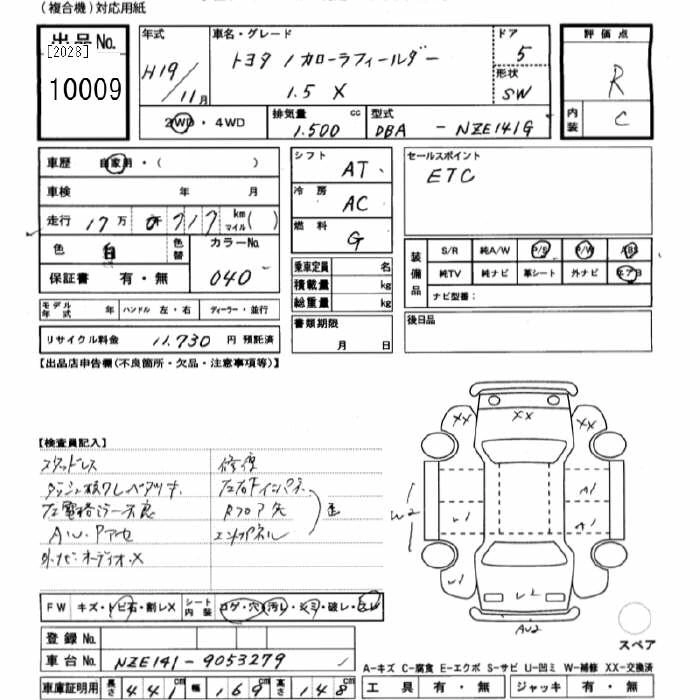 (複合機)対応用紙
出品No.
[2028]
10009
年式
H19/11月
車名・グレード
トヨタ / カローラフィールダー
1.5 X
ドア
5
形状
SW
評価点
R
内装
C
2WD・4WD
排気量
1.500 cc
型式
DBA - NZE141G
車歴 自家用・( )
車検 年 月
走行 17万 千717 km マイル( )
色 白 色替
カラーNo.
040
保証書 有・無
シフト AT
冷房 AC
燃料 G
乗車定員 名
積載量 kg
総重量 kg
書類期限
月 日
セールスポイント
ETC
装備品
S/R 純A/W P/S P/W ABS
純TV 純ナビ 革シート 外ナビ エアB
ナビ型番:
後日品
モデル年式 年 ハンドル 左・右 ディーラー・並行
リサイクル料金 11.730 円 預託済
【出品店申告欄(不良箇所・欠品・注意事項等)】
【検査員記入】
スタッドレス
修復
ダッシュ
左電格ミラー不良
A.W.
外ナビオーディオ X
エンドパネル
歪
XX XX XX
A1
A1
W2
U1
U1
U2
U1
AU2
FW キズ・トビ石・割レX シート内装 コゲ・穴・汚レ・シミ・破レ・スレ
登録No.
車台No. NZE141-9053279
車庫証明用 長さ 441cm 幅 169cm 高さ 148cm
スペア
A-キズ C-腐食 E-エクボ S-サビ U-凹ミ W-補修 XX-交換済
工具 有・無 ジャッキ 有・無